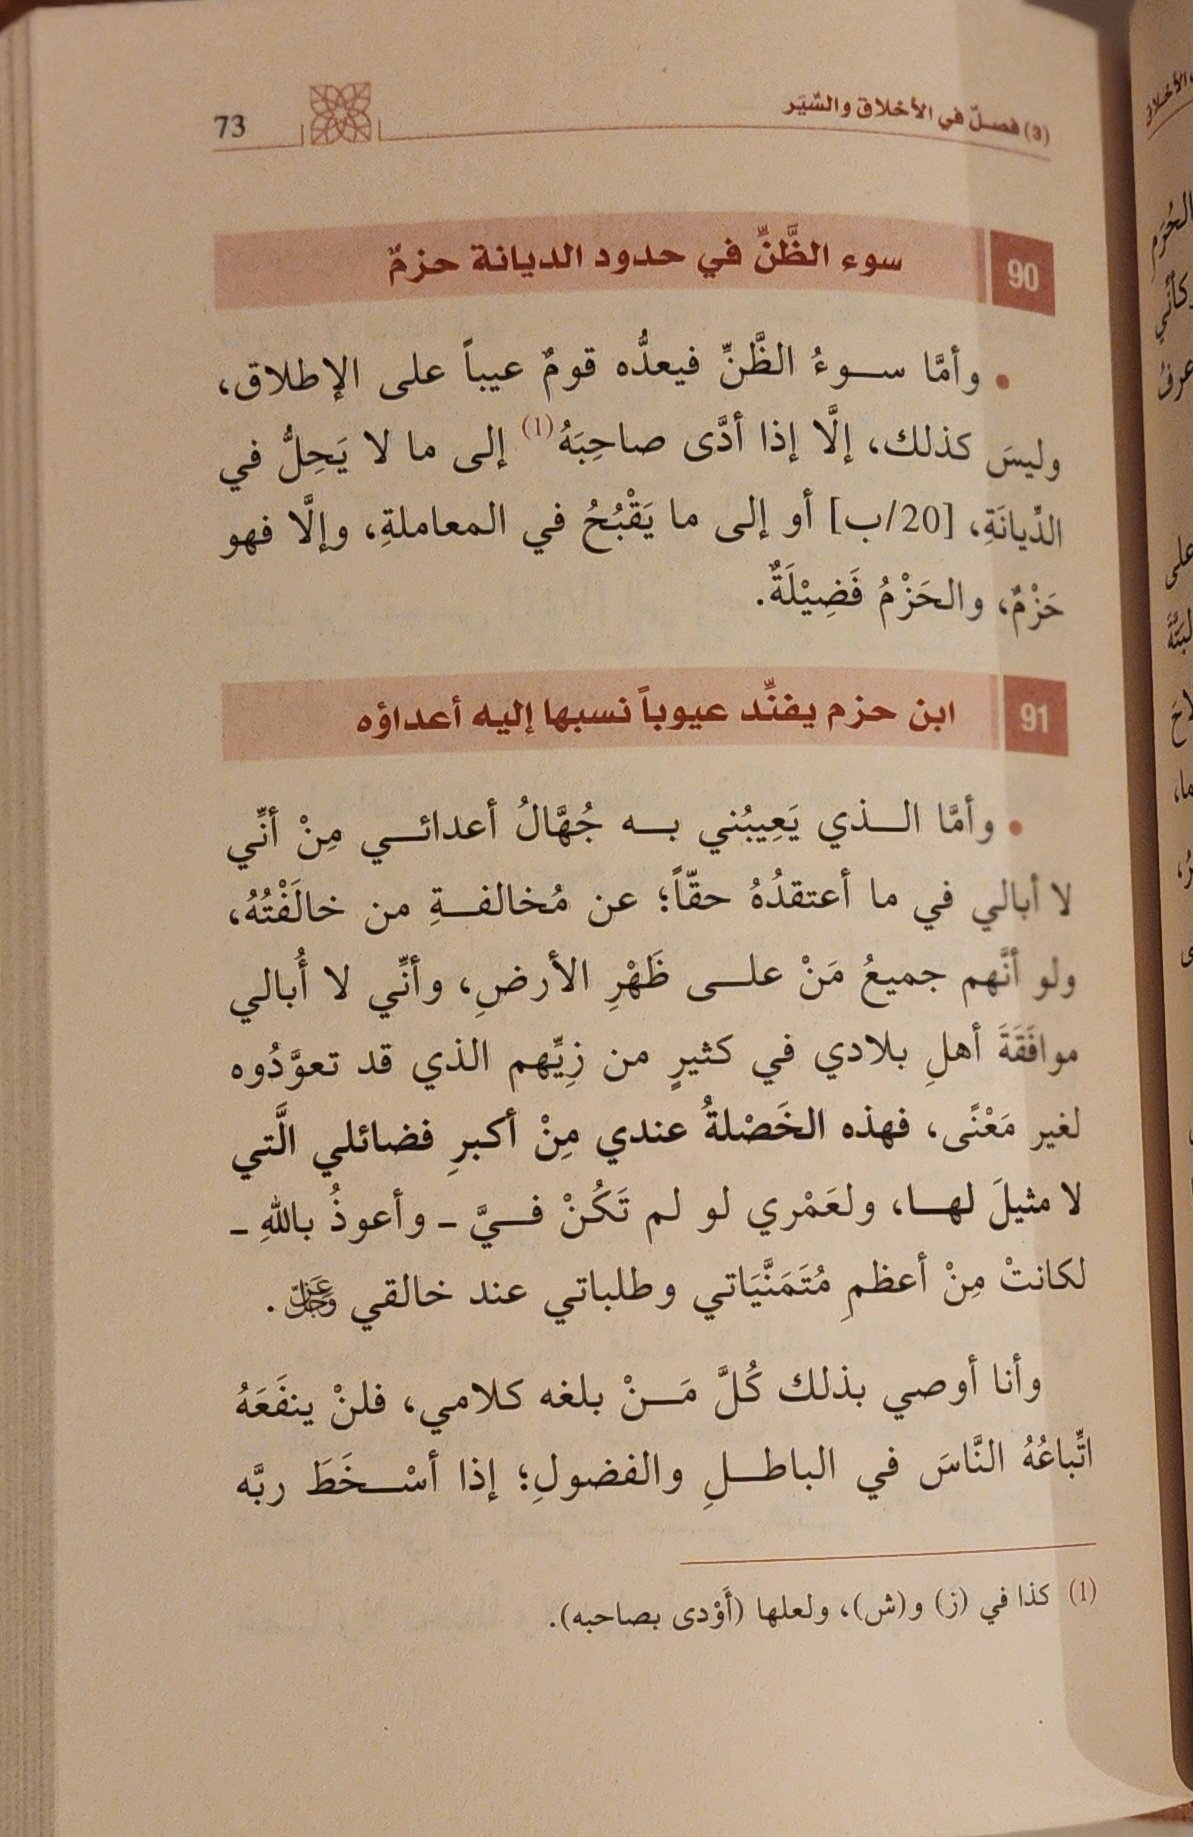 (3) فصلّ في الأخلاق والسِّيَر
73
90
سوء الظَّنِّ في حدود الديانة حزمٌ
• وأمَّا ســوءُ الظَّنِّ فيعدُّه قومٌ عيباً على الإطلاق،
وليسَ كذلك، إلَّا إذا أدَّى صاحِبَهُ(1) إلى ما لا يَحِلُّ في
الدِّيانَةِ، [20/ب] أو إلى ما يَقْبُحُ في المعاملةِ، وإلَّا فهو
حَزْمٌ، والحَزْمُ فَضِيْلَةٌ.
91
ابن حزم يفنِّد عيوباً نسبها إليه أعداؤه
• وأمَّا الــذي يَعِيبُني بــه جُهَّالُ أعدائــي مِنْ أنّي
لا أبالي في ما أعتقدُهُ حقّاً؛ عن مُخالفــةِ من خالَفْتُهُ،
ولو أنَّهم جميعُ مَنْ علــى ظَهْرِ الأرضِ، وأنّي لا أُبالي
موافَقَةَ أهلِ بلادي في كثيرٍ من زِيِّهم الذي قد تعوَّدُوه
لغير مَعْنًى، فهذه الخَصْلةُ عندي مِنْ أكبرِ فضائلي الَّتي
لا مثيلَ لهــا، ولعَمْري لو لم تَكُنْ فــيَّ ـ وأعوذُ باللهِ ـ
لكانتْ مِنْ أعظمِ مُتَمَنَّيَاتي وطلباتي عند خالقي عَزَّوَجَلَّ .
وأنا أوصي بذلك كُلَّ مَــنْ بلغه كلامي، فلنْ ينفَعَهُ
اتِّباعُهُ النَّاسَ في الباطــلِ والفضولِ؛ إذا أسْــخَطَ ربَّه
(1) كذا في (ز) و(ش)، ولعلها (أَوْدى بصاحبه).